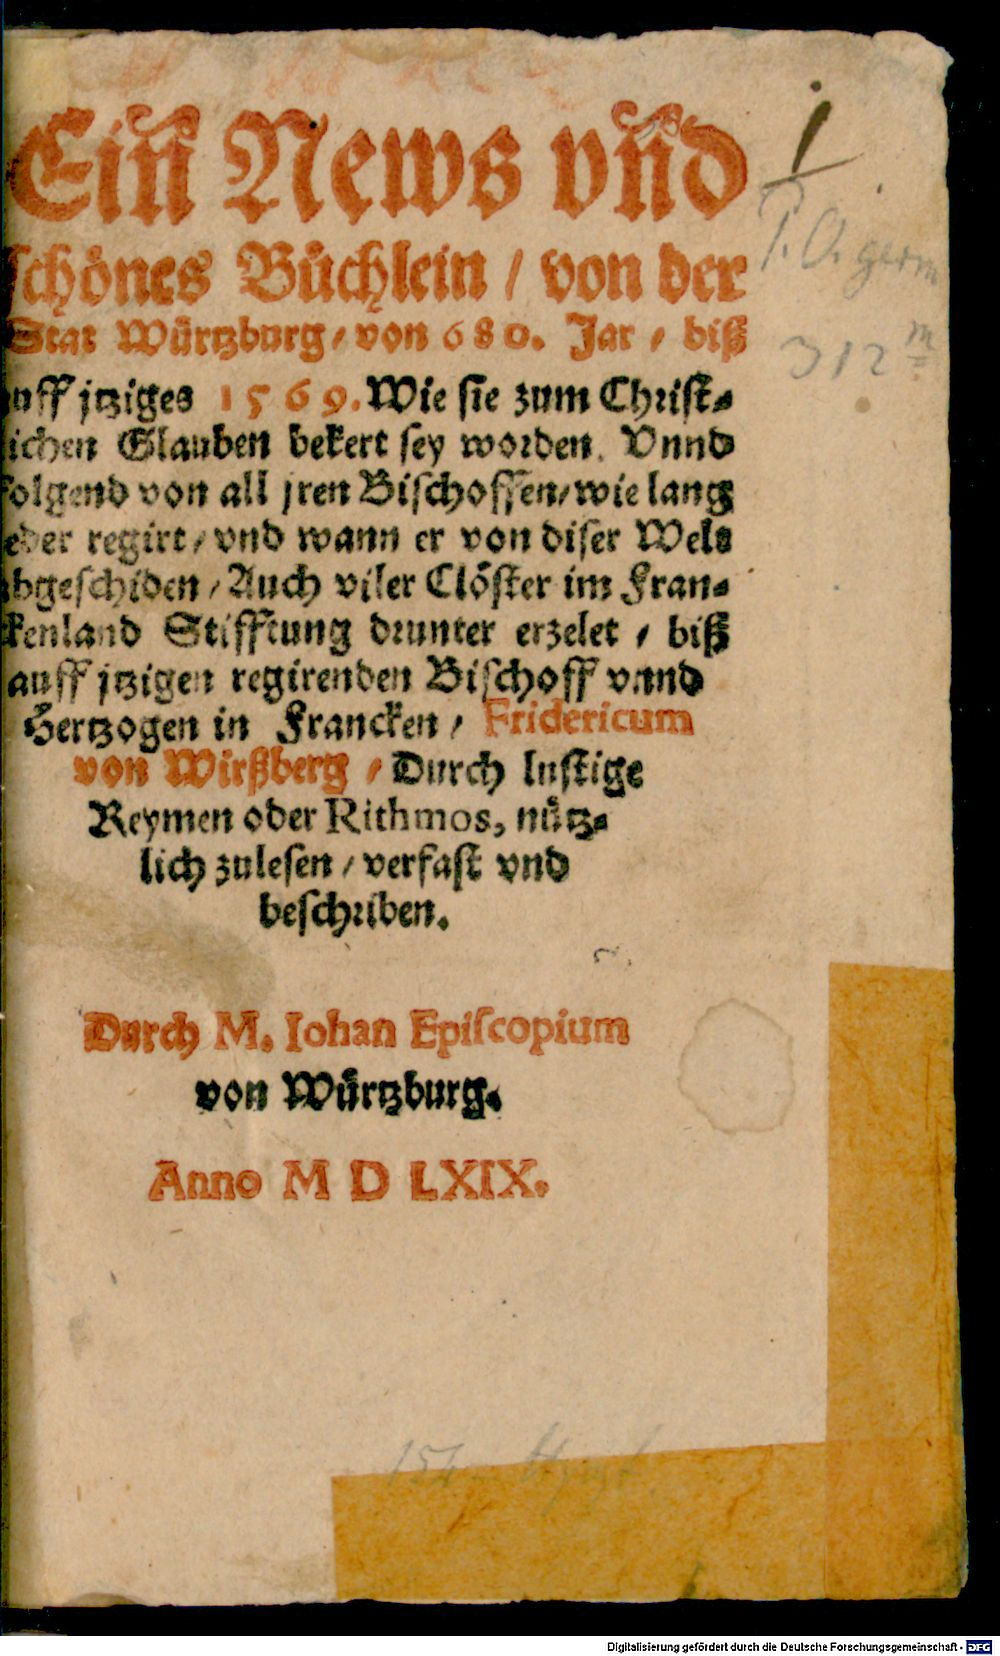 Ein News vnd
schönes Büchlein / von der
Stat Würtzburg / von 680. Jar / biß
auff jtziges 1569. Wie sie zum Christ-
lichen Glauben bekert sey worden. Vnnd
folgend von all jren Bischoffen / wie lang
jeder regirt / vnd wann er von diser Wels
abgeschiden / Auch viler Clöster im Fran-
ckenland Stifftung drunter erzelet / biß
auff jtzigen regirenden Bischoff vnnd
Hertzogen in Francken / Fridericum
von Wirßberg / Durch lustige
Reymen oder Rithmos, nütz-
lich zulesen / verfast vnd
beschriben.
Durch M. Iohan Episcopium
von Würtzburg.
Anno M D LXIX.
1
P. O. germ
312 m
Digitalisierung gefördert durch die Deutsche Forschungsgemeinschaft - DFG